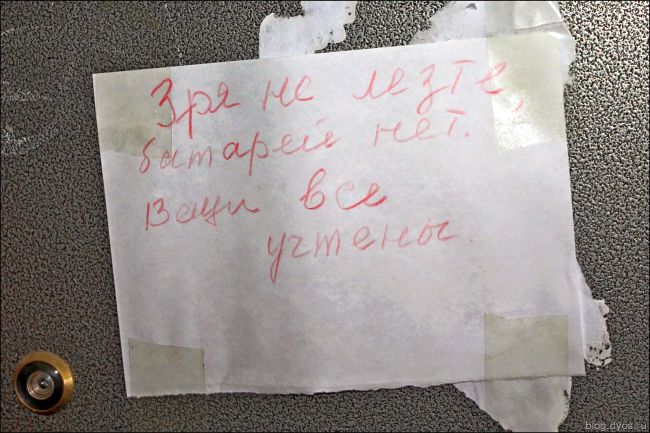 Зря не лезте,
батарей нет.
Вещи все
учтены.
blog.dyos.ru